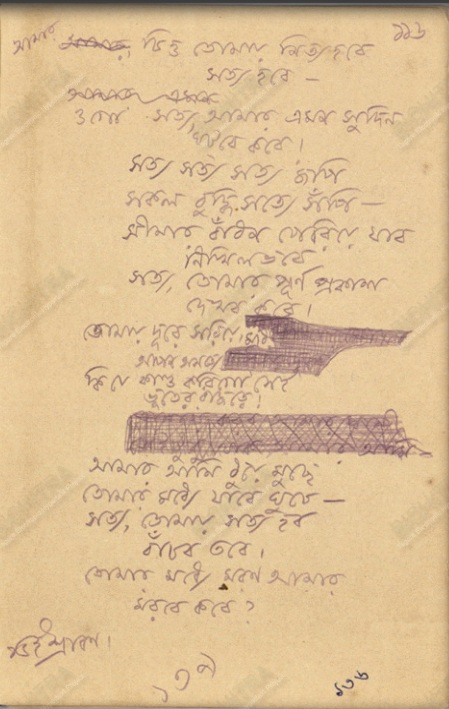 ১১৬
আমার চিত্ত তোমায় নিত্য হবে
সত্য হবে —
ওগো সত্য, আমার এমন সুদিন
ঘটবে কবে।
সত্য সত্য সত্য জপি
সকল বুদ্ধি সত্যে সঁপি —
সীমার বাঁধন পেরিয়ে যাব
নিখিল ভবে
সত্য, তোমার পূর্ণ প্রকাশ
দেখব কবে।
তোমায় দূরে সরিয়ে, মরি
আপন অসত্যে
কি যে কাণ্ড করিগো সেই
ভূতের রাজত্বে।
আমার আমি ধুয়ে মুছে
তোমার মধ্যে যাবে ঘুচে —
সত্য, তোমায় সত্য হব
বাঁচব তবে।
তোমার মধ্যে মরণ আমার
মরবে কবে?
শ্রাবণ।
১৩৭
১৩৬